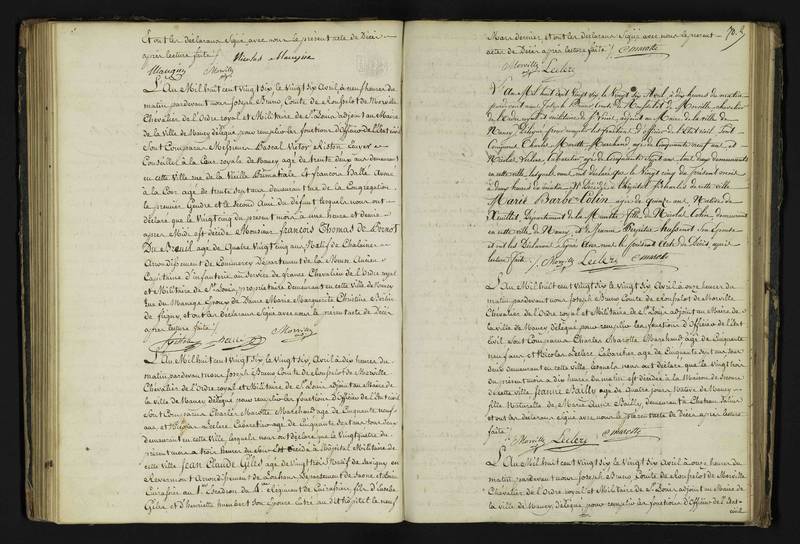 Et ont les déclarans Signé avec nous le présent acte de Décès
après lecture faite /. Nicolas Maugin
Maugin Morville
L'An Mil huit cent Vingt Six, le Vingt Six Avril, à neuf heures du
matin pardevant nous Joseph Bruno, Comte de Morville
Chevalier de l'Ordre royal et Militaire de St Louis adjoint au Maire
de la Ville de Nancy délégué pour remplir les fonctions d'Officier de l'Etat civil
Sont Comparus Messieurs Pascal Victor Riston
Conseiller à la Cour royale de Nancy âgé de trente deux ans demeurant
en cette ville rue de la Vieille et françois
à la Cour âgé de trente Sept ans demeurant rue de la Congrégation
le premier Gendre et le Second Ami du défunt lesquels nous ont
déclaré que le Vingt cinq du présent mois à une heure et demie
après Midi est décédé Monsieur françois Thomas de
Du Breuil âgé de Quatre Vingt ans Natif de
Arrondissement de Commercy Département de la Meuse Ancien
Capitaine d'infanterie au Service de france Chevalier de l'Ordre royal
et Militaire de St Louis, propriétaire demeurant en cette Ville de Nancy
rue du Manège Epoux de Dame Marie Marguerite Christine
de et ont les déclarans Signé avec nous le présent acte de Décès
après lecture faite /.
Morville
L'An Mil huit cent Vingt Six, le Vingt Six Avril à dix heures du
matin pardevant nous Joseph Bruno Comte de Morville
Chevalier de l'Ordre royal et Militaire de St Louis adjoint au Maire de
la Ville de Nancy délégué pour remplir les fonctions d'Officier de l'Etat civil
Sont Comparus Charles Marotte Marchand âgé de Cinquante neuf
ans et Nicolas Leclerc Cabaretier âgé de Cinquante Sept ans tous deux
demeurant en cette Ville, lesquels nous ont déclaré que le Vingt quatre du
présent mois à trois heures du est décédé à l'hôpital Militaire de
cette ville Jean Claude Gilet âgé de Vingt trois Natif de Savigny en
Revermont Arrondissement de Louhans Département de Saone et Loire
Cuirassier au 1er Escadron du Régiment de Cuirassiers, fils d'
Gilet et d'henriette humbert son Epouse entré au dit hôpital le neuf
Mars dernier, et ont les déclarans Signé avec nous le présent
acte de Décès après lecture faite /. CMarotte
Morville Leclerc
L'An Mil huit cent vingt six le Vingt Six Avril, à dix heures du matin
pardevant nous Joseph Bruno Comte de Morville, chevalier
de l'Ordre royal et militaire de St Louis, adjoint au Maire de la ville de
Nancy, délégué pour remplir les fonctions d'officier de l'Etat civil Sont
Comparus Charles Marotte Marchand âgé de Cinquante neuf ans et
Nicolas Leclerc, Cabaretier âgé de Cinquante Sept ans, tous deux demeurants
en cette ville, lesquels nous ont déclaré que le Vingt cinq du présent mois
à dix heures du matin est décédée à l'hôpital St Charles de cette ville
Marie Barbe Colin âgée de quinze ans Native de
Département de la Meurthe fille de Nicolas Colin, demeurant
en cette ville de Nancy, et de Jeanne son Epouse
et ont les Déclarants Signé Avec nous le présent Acte de Décès, après
lecture faite /. Morville Leclerc CMarotte
L'An Mil huit cent Vingt Six, le Vingt Six Avril à onze heures du
matin pardevant nous Joseph Bruno Comte de Morville
Chevalier de l'Ordre royal et Militaire de St Louis adjoint au Maire de
la ville de Nancy délégué pour remplir les fonctions d'Officier de l'Etat
civil Sont Comparus Charles Marotte Marchand âgé de Cinquante
neuf ans et Nicolas Leclerc Cabaretier âgé de Cinquante Sept ans tous
deux demeurant en cette ville, lesquels nous ont déclaré que le Vingt cinq
du présent mois à dix heures du matin est décédée à la Maison de Secours
de cette ville Jeanne Bailly âgée de Quatre jours Native de Nancy
fille Naturelle de Marie Anne Bailly demeurant à Chateau Salins
et ont les déclarans Signé avec nous le présent acte de Décès après lecture
faite /.
Morville Leclerc CMarotte
L'An Mil huit cent Vingt Six, le Vingt Six Avril à onze heures du
matin pardevant nous Joseph Bruno Comte de Morville
Chevalier de l'Ordre royal et Militaire de St Louis adjoint au Maire de
la Ville de Nancy, délégué pour remplir les fonctions d'Officier de l'Etat
civil